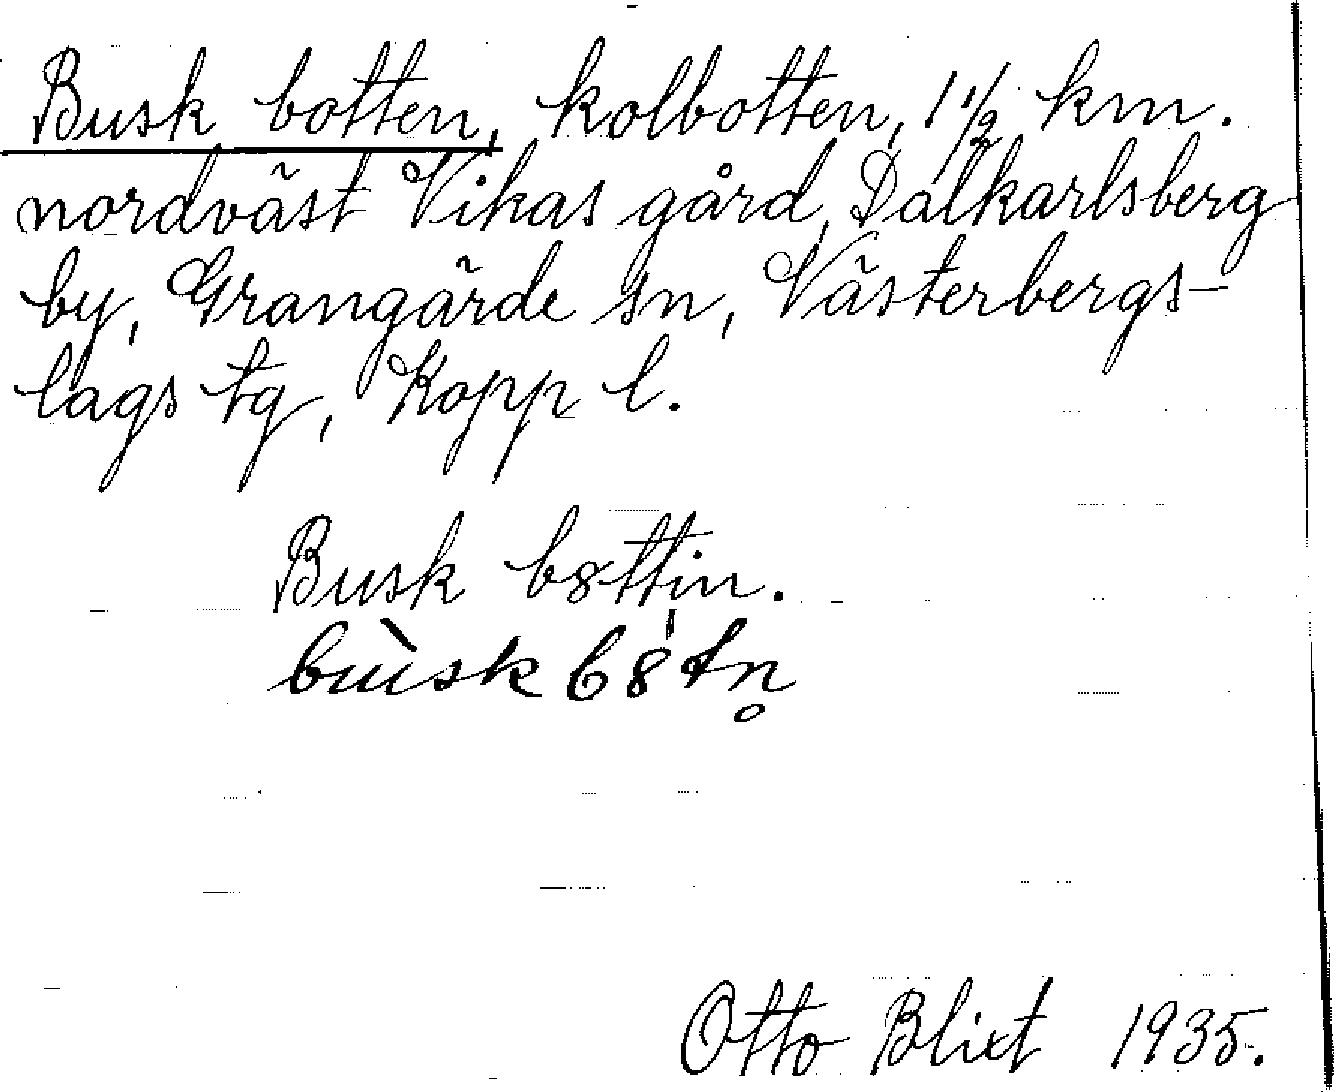 Busk botten, kolbotten, 1 1/2 km.
nordväst Vikas gård, Dalkarlsberg
by, Grangärde sn, Västerbergs-
lags tg, Kopp l.
Busk b8ttin.
bùsk b8tn̥
Otto Blixt 1935.